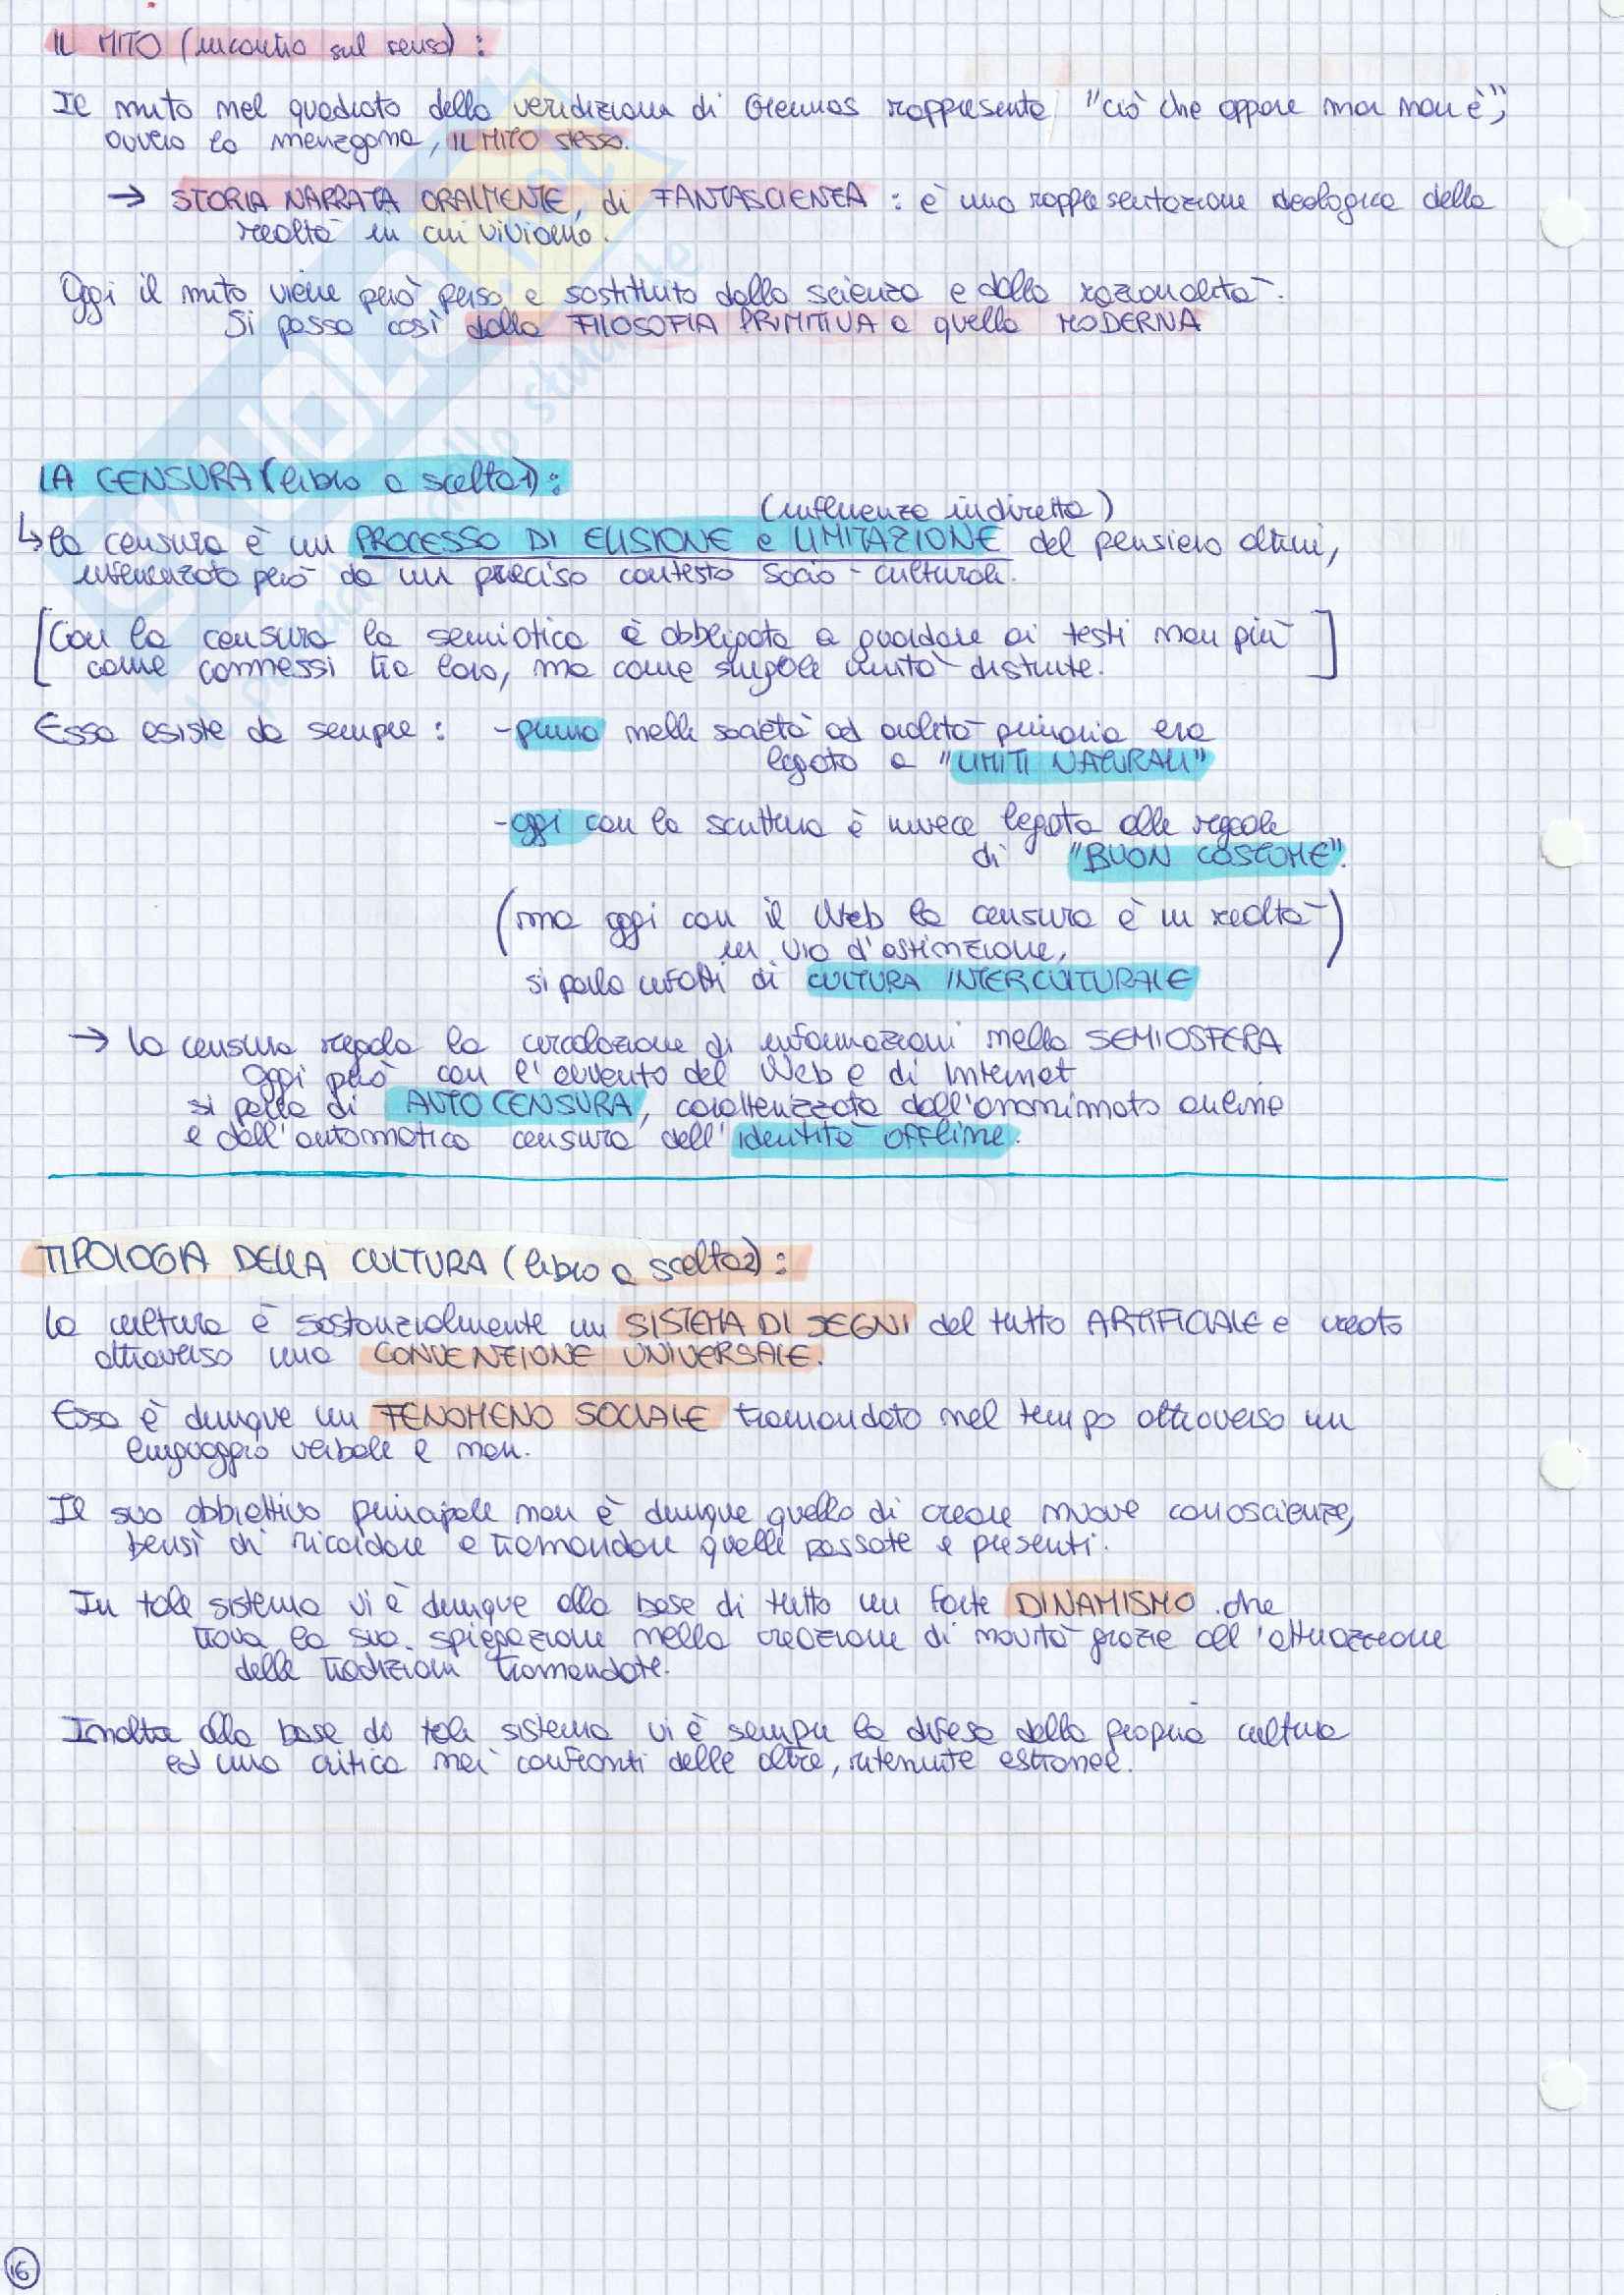 IL MITO (incontro sul senso):
Il mito nel quadrato della veridizione di Greimas rappresenta "ciò che appare ma non è",
ovvero la menzogna, IL MITO stesso.
→ STORIA NARRATA ORALMENTE, di FANTASCIENZA: è una rappresentazione ideologica della
realtà in cui viviamo.
Oggi il mito viene però perso e sostituito dalla scienza e dalla razionalità.
Si passa così dalla FILOSOFIA PRIMITIVA a quella MODERNA
LA CENSURA (libro a scelta 1):
(influenza indiretta)
↳ la censura è un PROCESSO DI ELISIONE e LIMITAZIONE del pensiero altrui,
influenzato però da un preciso contesto socio-culturale.
[Con la censura la semiotica è obbligata a guardare ai testi non più
come connessi tra loro, ma come singole unità distinte.]
Essa esiste da sempre: - prima nelle società ad oralità primaria era
legata a "LIMITI NATURALI"
- oggi con la scrittura è invece legata alle regole
di "BUON COSTUME".
(ma oggi con il Web la censura è in realtà
in via d'estinzione,)
si parla infatti di CULTURA INTERCULTURALE
→ la censura regola la circolazione di informazioni nella SEMIOSFERA
Oggi però con l'avvento del Web e di Internet
si parla di AUTOCENSURA, caratterizzata dall'anonimato online
e dall'automatica censura dell'identità offline.
TIPOLOGIA DELLA CULTURA (libro a scelta 2):
La cultura è sostanzialmente un SISTEMA DI SEGNI del tutto ARTIFICIALE e creato
attraverso una CONVENZIONE UNIVERSALE.
Essa è dunque un FENOMENO SOCIALE tramandato nel tempo attraverso un
linguaggio verbale e non.
Il suo obbiettivo principale non è dunque quello di creare nuove conoscienze,
bensì di ricordare e tramandare quelle passate e presenti.
In tale sistema vi è dunque alla base di tutto un forte DINAMISMO che
trova la sua spiegazione nella creazione di novità grazie all'attuazione
delle tradizioni tramandate.
Inoltre alla base di tale sistema vi è sempre la difesa della propria cultura
ed una critica nei confronti delle altre, ritenute estranee.
16